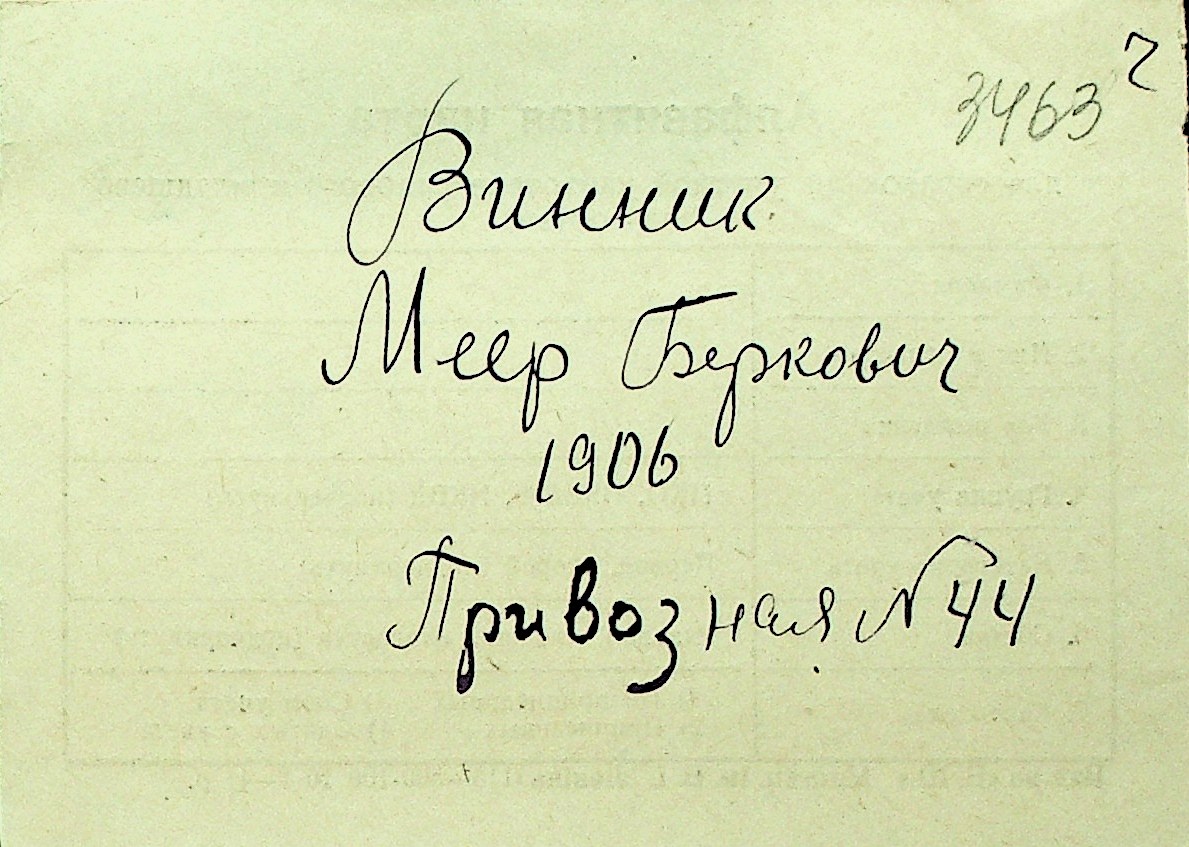 3463
Винник
Меер Беркович
1906
Привозная № 44